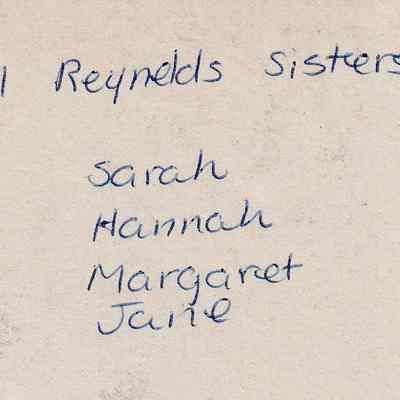 Reynolds Sisters
Sarah
Hannah
Margaret
Jane